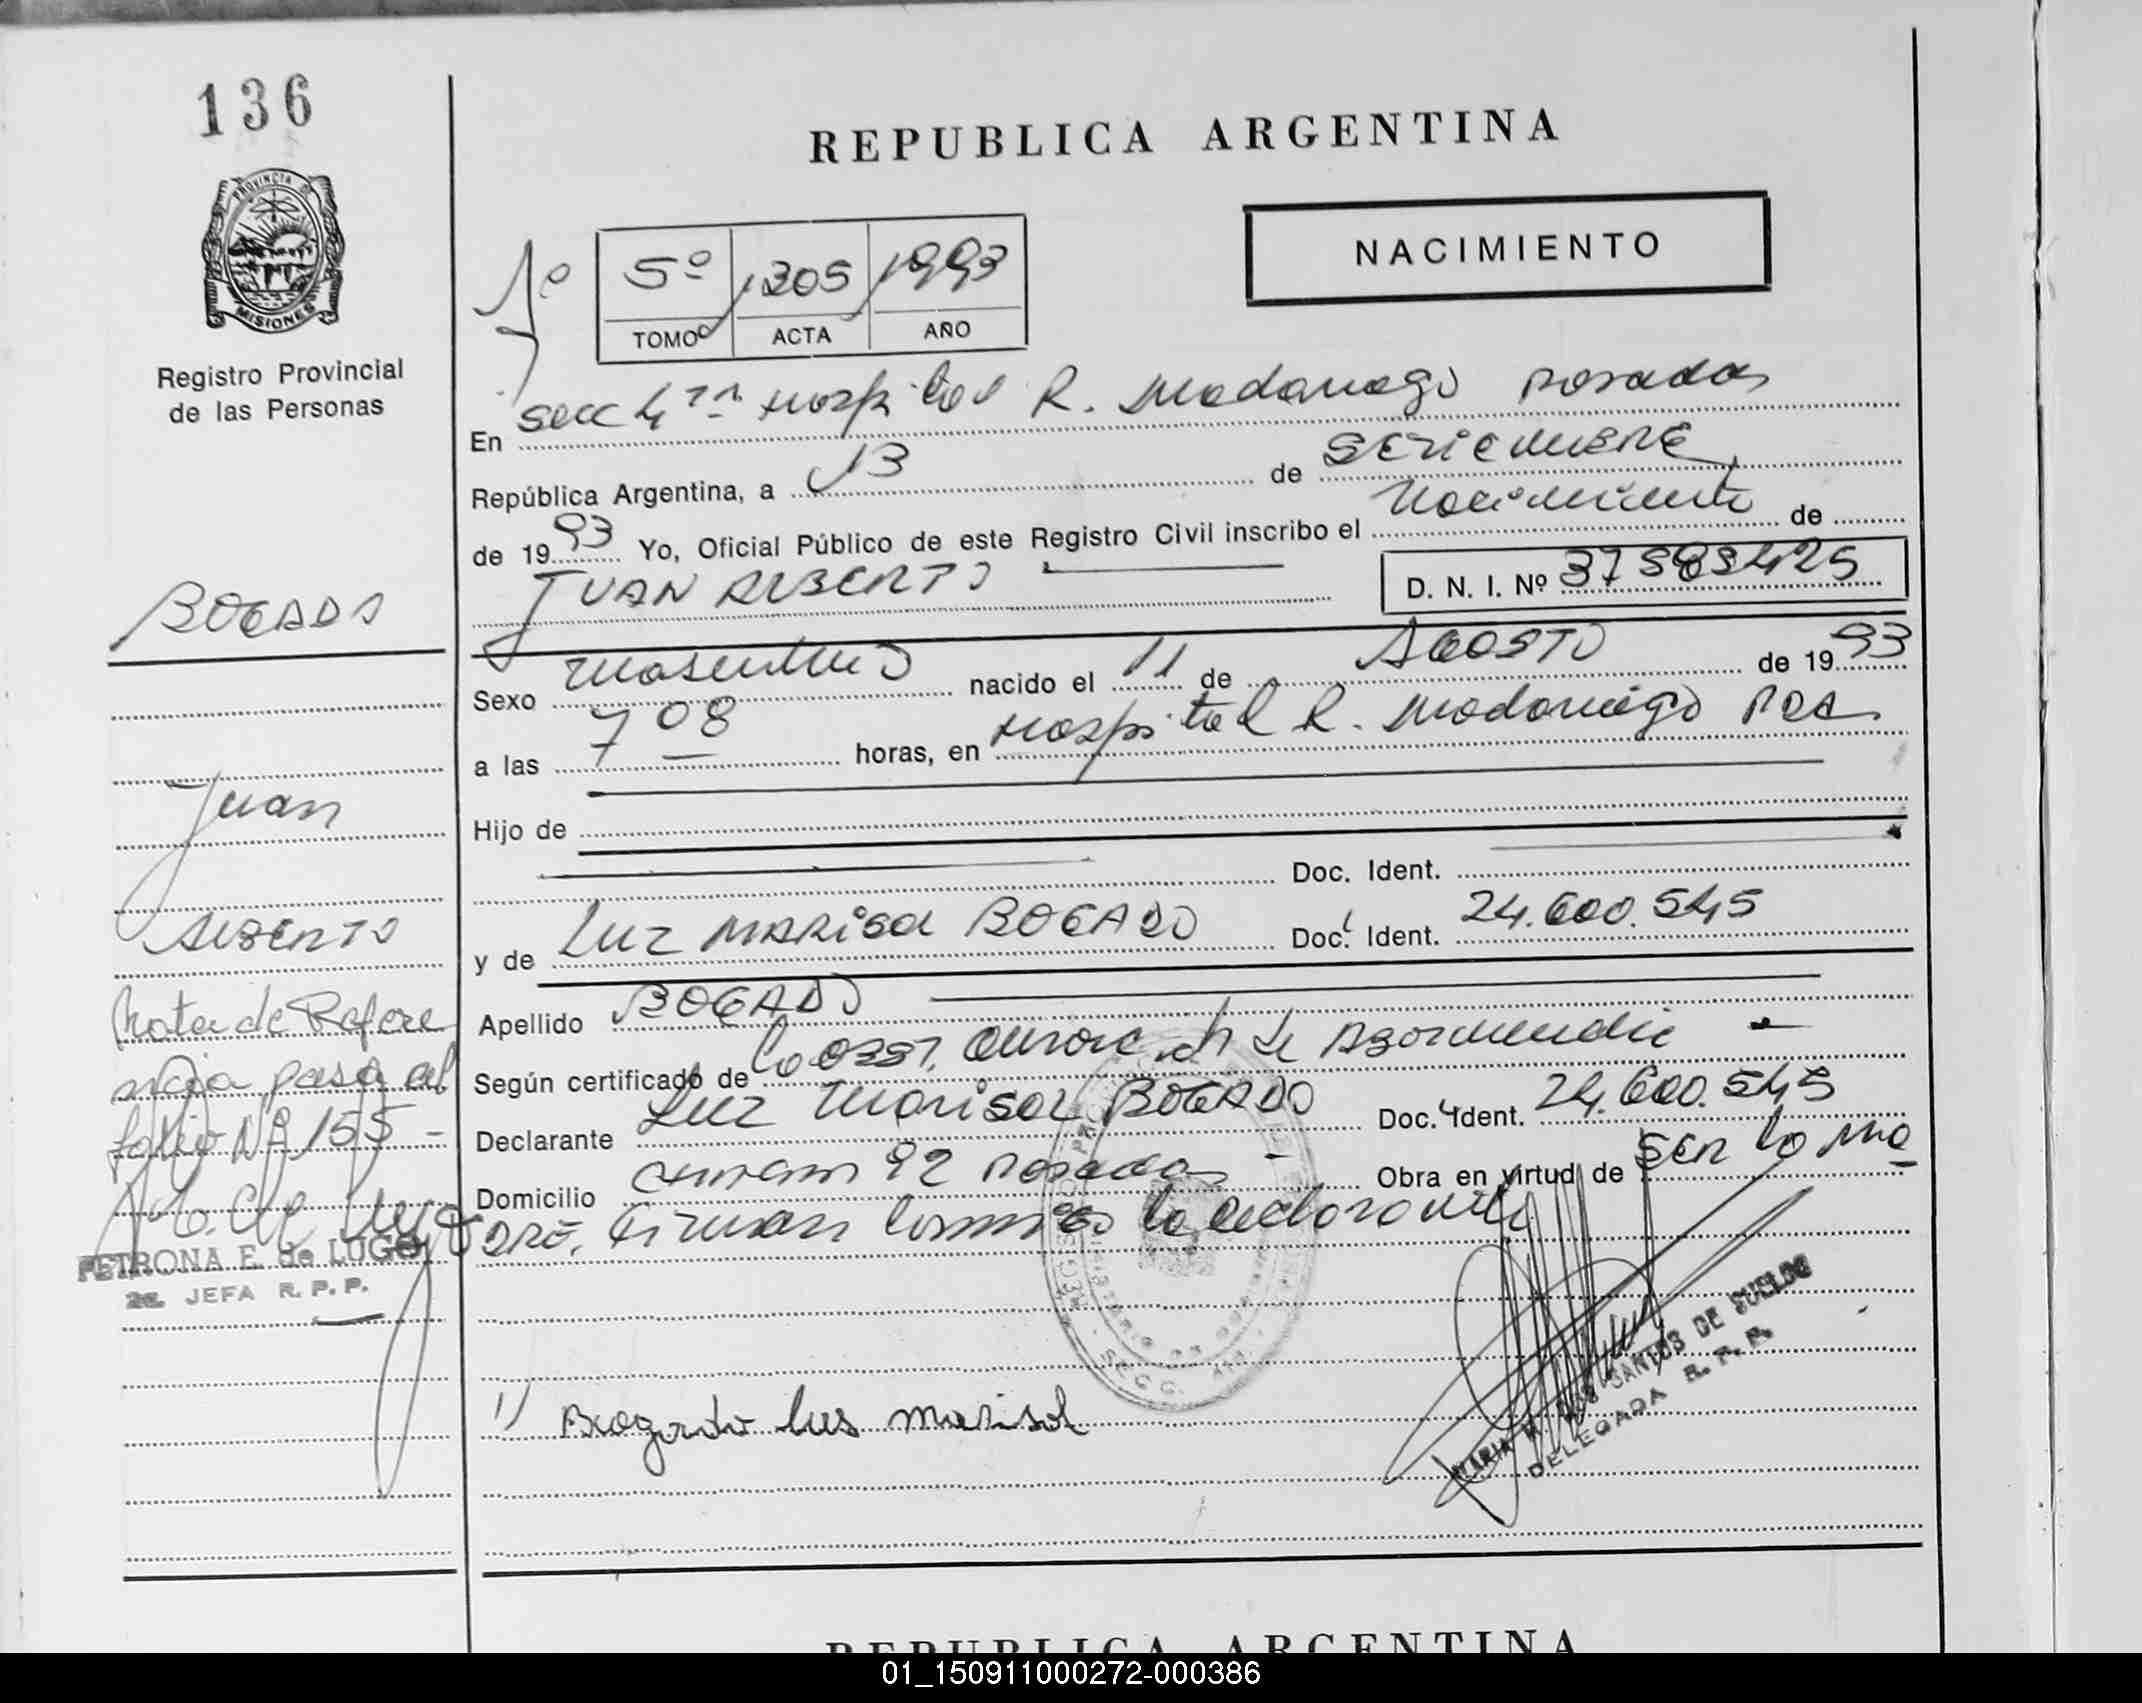 136
REPUBLICA ARGENTINA
PROVINCIA DE
MISIONES
Registro Provincial
de las Personas
NACIMIENTO
1º 5º 1305 1993
TOMO ACTA AÑO
En Secc 4ta Hospital R. Madariaga Posadas
República Argentina, a 13 de SETIEMBRE
de 1993 Yo, Oficial Público de este Registro Civil inscribo el Nacimiento de
JUAN ALBERTO D. N. I. Nº 37589425
Sexo masculino nacido el 11 de AGOSTO de 1993
a las 7 08 horas, en Hospital R. Madariaga Pdas
Hijo de
Doc. Ident.
y de Luz MARisol BOGADO Doc. Ident. 24.600.545
Apellido BOGADO
Según certificado de la obst.
Declarante Luz Marisol BOGADO Doc. Ident. 24.600.545
Domicilio 92 Posadas Obra en virtud de SER la ma
dre. Firman la declarante
1) Bogado lus marisol
MARIA DOS SANTOS DE SUELDO
DELEGADA R. P. P.
BOGADO
Juan
ALBERTO
Nota de Refere
ncia pasa al
folio Nº 155 -
PETRONA E. de LUGO
2a. JEFA R. P. P.
REPUBLICA ARGENTINA
01_150911000272-000386